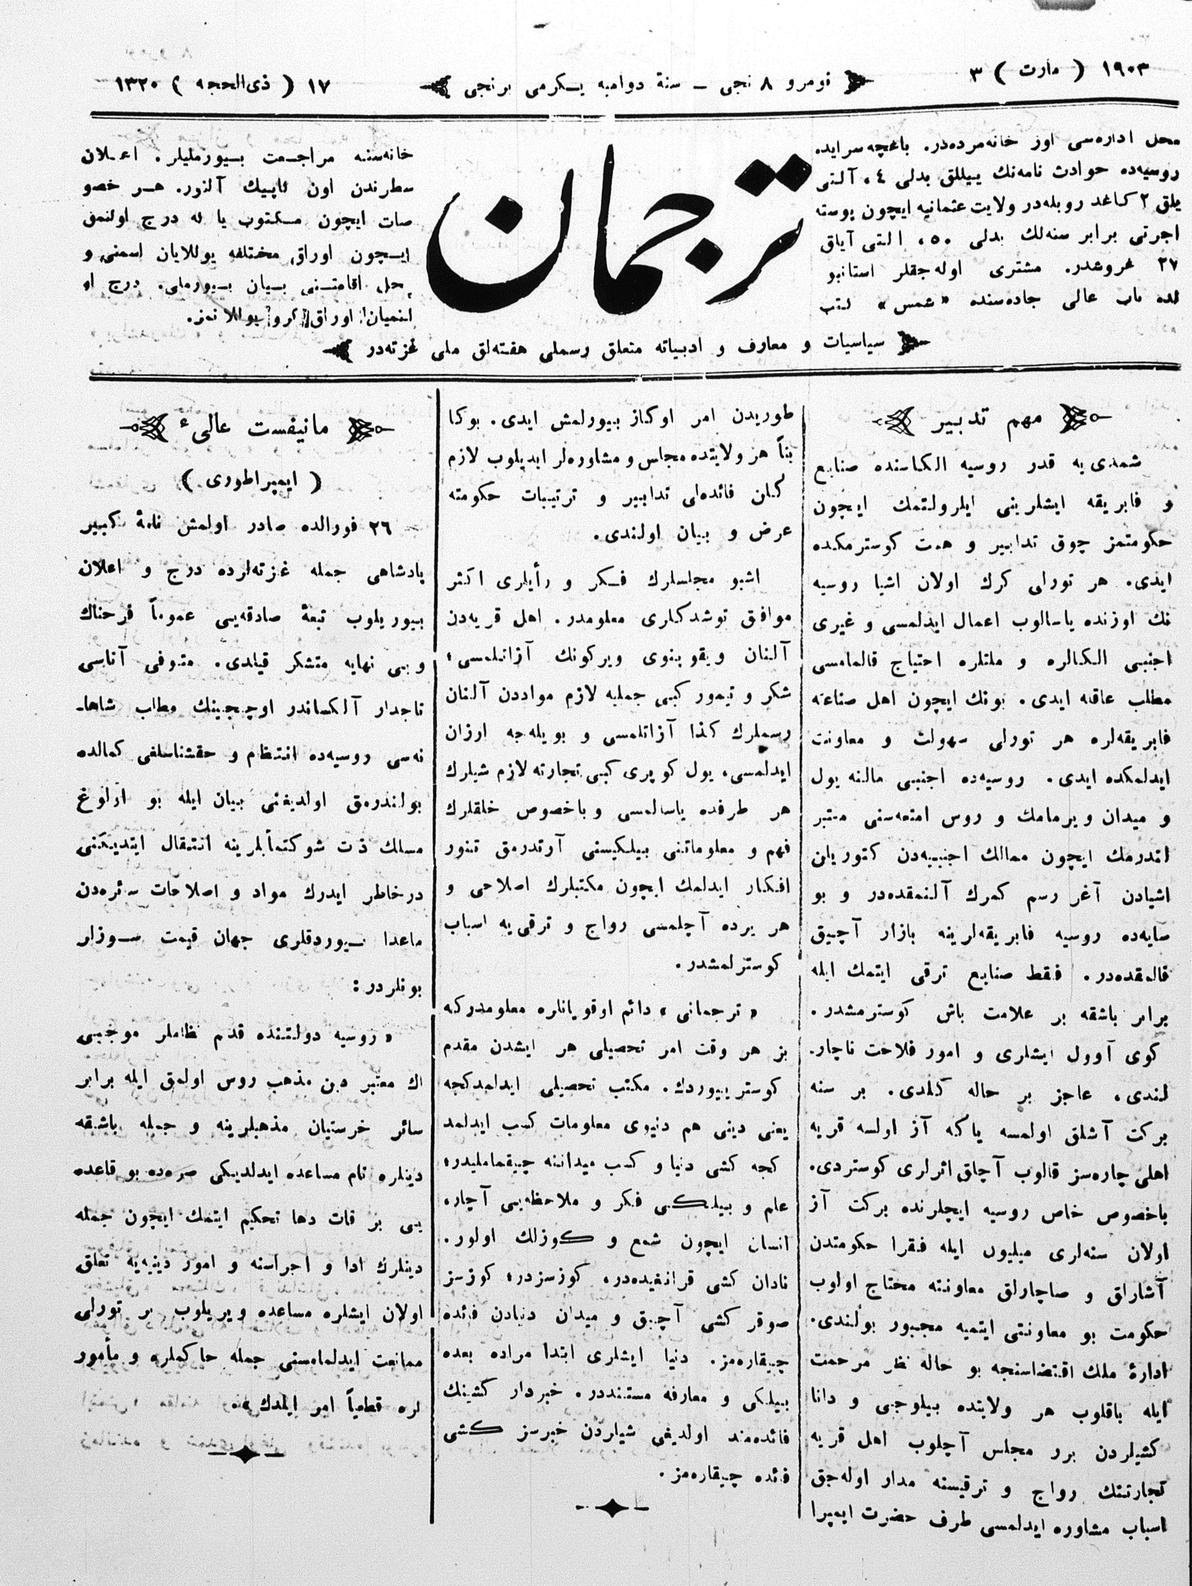 ١٩٠٣ ( مارت ) ٣
نومرو ٨ نجی ــ سنهٔ دوامیه یكرمی برنجی
١٧ ( ذی‌الحجه ) ١٣٢٠
محل اداره‌سی اوز خانه‌مزده‌در. باغچه‌سرایده
روسیه‌ده حوادث نامه‌نك ییللق بدلی ٤، آلتی
یلق ٢ كاغد روبله‌در ولایت عثمانیه ایچون پوسته
اجرتی برابر سنه‌لك بدلی ٥٠، التی آیلق
٢٧ غروشدر. مشتری اوله‌جقلر استانبو
لده باب عالی جاده‌سنده «شمس» كتب
ترجمان
خانه‌سنه مراجعت بیورملیلر. اعلان
سطرندن اون كاپیك آلنور. هر خصو
صات ایچون مكتوب یا كه درج اولنمق
ایچون اوراق مختلفه یوللایان اسمنی و
محل اقامتنی بیان بیورملی. درج او
لنمیان اوراق كرو یوللانمز.
سیاسیات و معارف و ادبیاته متعلق رسملی هفته‌لق ملی غزته‌در
مهم تدبیر
شمدی‌یه قدر روسیه الكاسنده صنایع
و فابریقه ایشلرینی ایلرولتمك ایچون
حكومتمز چوق تدابیر و همت كوسترمكده
ایدی. هر تورلی كرك اولان اشیا روسیه
نك اوزنده یاصالوب اعمال ایدلمسی و غیری
اجنبی الكالره و ملتلره احتیاج قالمامسی
مطلب عاقه ایدی. بونك ایچون اهل صناعته
فابریقه‌لره هر تورلی سهولت و معاونت
ایدلمكده ایدی. روسیه‌ده اجنبی مالنه یول
و میدان ویرمامك و روس امتعه‌سنی معتبر
اتدرمك ایچون ممالك اجنبیه‌دن كتوریلن
اشیادن آغر رسم كمرك آلنمقده‌در و بو
صایه‌ده روسیه فابریقه‌لرینه بازار آچیق
قالمقده‌در. فقط صنایع ترقی ایتمك ایله
برابر باشقه بر علامت باش كوسترمشدر.
كوی آوول ایشلری و امور فلاحت ناچار.
لندی، عاجز بر حاله كلدی. بر سنه
بركت آشلق اولمسه یاكه آز اولسه قریه
اهلی چاره‌سز قالوب آچلق اثرلری كوستردی.
باخصوص خاص روسیه ایچلرنده بركت آز
اولان سنه‌لری میلیون ایله فقرا حكومتدن
آشارلق و صاچارلق معاونته محتاج اولوب
حكومت بو معاونتی ایتمیه مجبور بولندی.
ادارهٔ ملك اقتضاسنجه بو حاله نظر مرحمت
ایله باقلوب هر ولایتده بیلوجی و دانا
كشیلردن برر مجلس آچلوب اهل قریه
تجارتنك رواج و ترقیسنه مدار اوله‌جق
اسباب مشاوره ایدلمسی طرف حضرت ایمپرا
طوریدن امر اوكاز بیورلمش ایدی. بوكا
بناً هر ولایتده مجلس و مشاوره‌لر ایدیلوب لازم
كلن فائده‌لی تدابیر و ترتیبات حكومته
عرض و بیان اولندی.
اشبو مجلسلرك فكر و رأیلری اكثر
موافق توشدكلری معلومدر. اهل قریه‌دن
آلنان ویقوپنوی ویركونك آزاتلمسی؛
شكر و تیمور كبی جمله‌یه لازم مواددن آلنان
رسملرك كذا آزاتلمسی و بویله‌جه ارزان
ایدلمسی، یول كوپری كبی تجارته لازم شیلرك
هر طرفده یاصالمسی و باخصوص خلقلرك
فهم و معلوماتنی بیلكیسنی آرتدرمق تنور
افكار ایدلمك ایچون مكتبلرك اصلاحی و
هر یرده آچلمسی رواج و ترقی‌یه اسباب
كوسترلمشدر.
«ترجمانی» دائم اوقویانلره معلومدركه
بز هر وقت امر تحصیلی هر ایشدن مقدم
كوستریبوردك. مكتب تحصیلی ایدلمدكجه
یعنی دینی هم دنیوی معلومات كسب ایدلمد
كجه كشی دنیا و كسب میداننه چیقماملیدر؛
عام و بیلكی فكر و ملاحظه‌یی آچار،
انسان ایچون شمع و كوزلك اولور.
نادان كشی قرانغیده‌در، كوزسزدر؛ كوزسز
صوقر كشی آچیق و میدان دنیادن فائده
چیقاره‌مز. دنیا ایشلری ابتدا مراده بعده
بیلكی و معارفه مستنددر. خبردار كشینك
فائده‌مند اولدیغی شیلردن خبرسز كشی
فائده چیقاره‌مز.
مانیفست عالیء
( ایمپراطوری )
٢٦ فورالده صادر اولمش نامهٔ كبیر
پادشاهی جمله غزته‌لرده درج و اعلان
بیوریلوب تبعهٔ صادقه‌یی عموماً فرحناك
و بی نهایه متشكر قیلدی. متوفی آتاسی
تاجدار آلكساندر اوچنجینك مطلب شاها‌-
نه‌سی روسیه‌ده انتظام و حقشناسلغی كمالده
بولندرمق اولدیغنی بیان ایله بو اولوغ
مسلك ذت شوكتمأبلرینه انتقال ایتدیكنی
درخاطر ایدرك مواد و اصلاحات سائره‌دن
ماعدا بیوردقلری جهان قیمت سوزلر
بونلردر:
«روسیه دولتنده قدم نظاملر موجبی
اك معتبر دین مذهب روس اولمق ایله برابر
سائر خرستیان مذهبلرینه و جمله باشقه
دینلره تام مساعده ایدلدیكی صره‌ده بو قاعده
یی بر قات دها تحكیم ایتمك ایچون جمله
دینلرك ادا و اجراسنه و امور دینیه‌یه تعلق
اولان ایشلره مساعده ویریلوب بر تورلی
ممانعت ایدلمامسنی جمله حاكملره و مأمور
لره قطعیاً امر ایلدك».